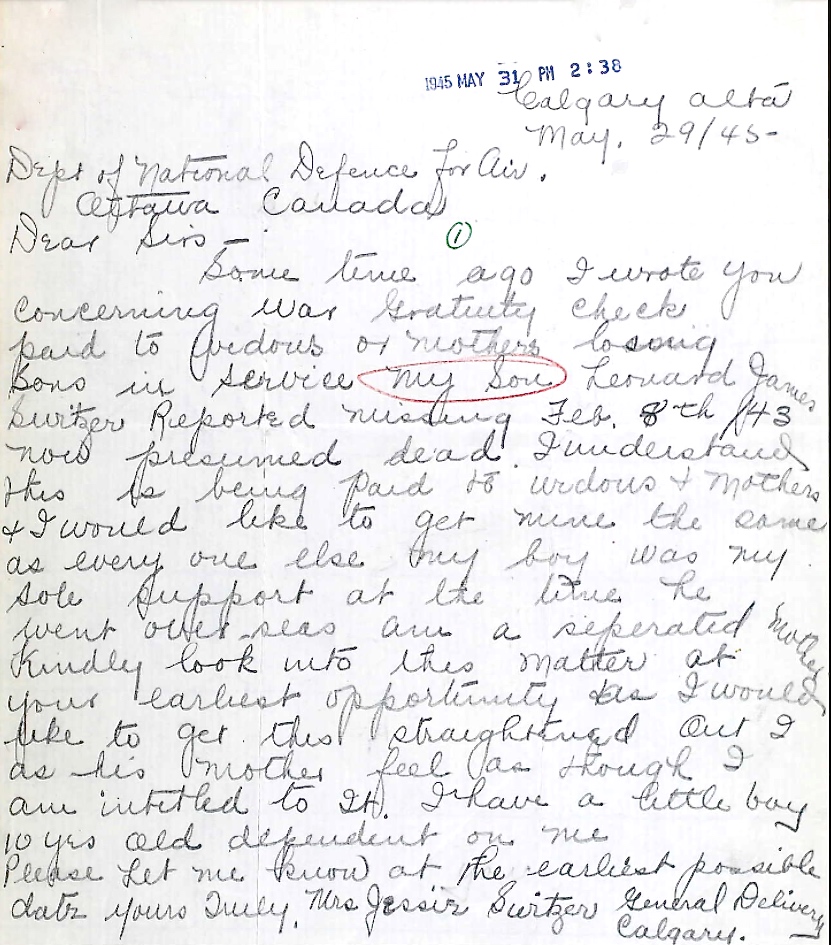 1945 MAY 31 PM 2:38
Calgary Alta
May. 29/45-
Dept of National Defence for Air.
Ottawa Canada
Dear Sirs -
1
Some time ago I wrote you
concerning War Gratuity check
paid to widous or mothers loosing
Sons in service my Son Leonard James
Switzer Reported missing Feb. 8th /43
now presumed dead. I understand
this is being paid to widous + Mothers
+ I would like to get mine the same
as every one else my boy was my
sole support at the time he
went over-seas am a seperated Mother
Kindly look into this matter at
your earliest opportunity as I would
like to get this straightened out I
as his mother feel as though I
am intitled to It. I have a little boy
10 yrs old dependent on me
Please Let me know at the earliest possible
date yours Truly, Mrs Jessie Switzer General Delivery
Calgary.